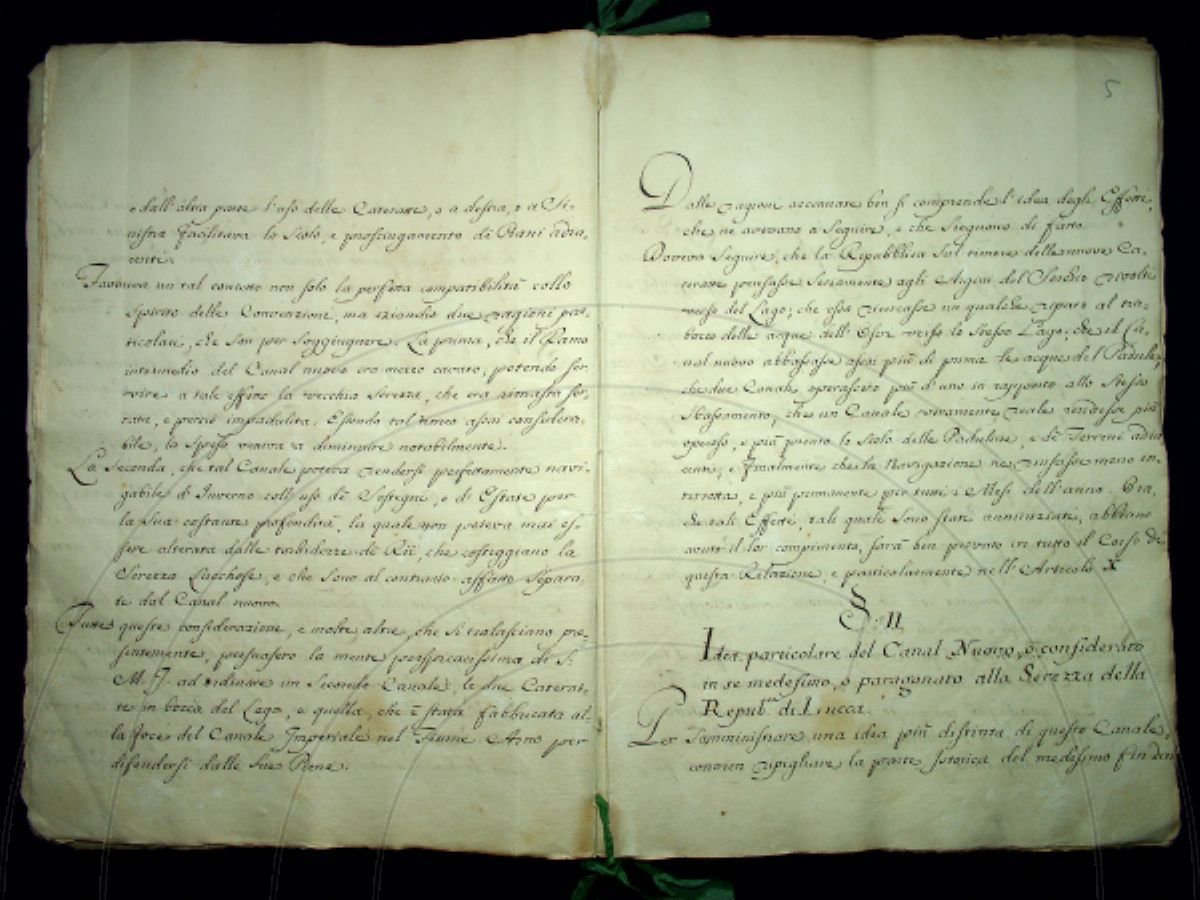 e dall'altra parte l'uso delle Cateratte, o a destra, o a Si-
nistra facilitava lo Scolo, e prosciugamento de' Piani adia,
centi.
Favoriva un tal concetto non solo la perfetta compatibilità collo
Spirito delle Convenzioni, ma eziandio due ragioni par-
ticolari, che son per soggiugnere. La prima, che il Ramo
intermedio del Canal nuovo era mezzo cavato, potendo ser-
vire a tale effetto la vecchia Serezza, che era rimasta ser-
rata, e perciò impadulita. Essendo tal tratto assai considera-
bile, la spesa veniva a diminuire notabilmente.
La Seconda, che tal Canale poteva rendersi perfettamente navi-
gabile d'Inverno coll'uso de' Sostegni, e di Estate per
la sua costante profondità, la quale non poteva mai es-
sere alterata dalle torbidezze de' Rii, che costeggiano la
Serezza Lucchese, e che sono al contrario affatto Separa-
te dal Canal nuovo.
Tutte queste considerazioni, e molte altre, che si tralasciano pre-
sentemente, persuasero la mente perspicacissima di S.
M. I. ad ordinare un Secondo Canale, le due Caterat-
te in bocca del Lago, e quella, che è stata fabbricata al-
la foce del Canale Imperiale nel Fiume Arno per
difendersi dalle sue Piene.
5
Dalle ragioni accennate ben si comprende l'idea degli Effetti,
che ne avevano a Seguire, e che Sieguono di fatto.
Doveva Seguire, che la Repubblica Sul timore delle nuove Ca-
teratte pensasse Seriamente agli Argini del Serchio rivolti
verso del Lago; che essa cercasse un qualche riparo al tra-
bocco delle acque dell'Oseri verso lo Stesso Lago; che il Ca-
nal nuovo abbassasse assai più di prima le acque del Padule,
che due Canali operassero più d'uno in rapporto allo Stesso
Sbassamento; che un Canale veramente reale rendesse più
operoso, e più pronto lo Scolo delle Paduline, e de' Terreni adia-
centi; e finalmente che la Navigazione ne riuscisse meno in-
terrotta, e più permanente per tutti i Mesi dell'anno. Ora,
Se tali Effetti, tali quali Sono Stati annunziati, abbiano
avuto il lor compimento, sarà ben provato in tutto il Corso di
questa Relazione, e particolarmente nell'Articolo X
§. II
Idea particolare del Canal Nuovo, o considerato
in se medesimo, o paragonato alla Serezza della
Repub.ca di Lucca.
Per Somministrare una idea più distinta di questo Canale,
convien ripigliare la parte Istorica del medesimo fin dal